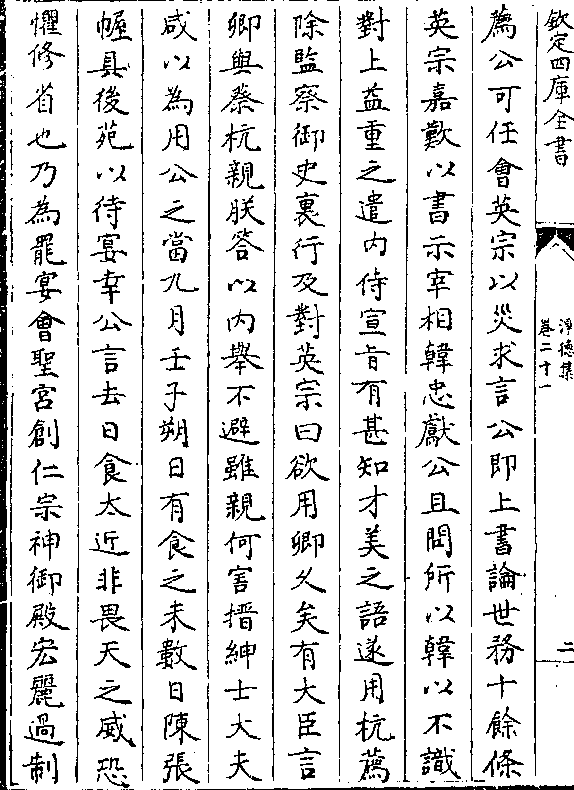 欽定四庫全書
淨德集
卷二十一
二
薦公可任會英宗以災求言公即上書論世務十餘條
英宗嘉歎以書示宰相韓忠獻公且問所以韓以不識
對上益重之遣内侍宣旨有甚知才美之語遂用杭薦
除監察御史裏行及對英宗曰欲用卿久矣有大臣言
卿與蔡杭親朕答以内舉不避雖親何害搢紳士大夫
咸以為用公之當九月壬子朔日有食之未數日陳張
幄具後苑以待宴幸公言去日食太近非畏天之威恐
懼修省也乃為罷宴會聖宮創仁宗神御殿宏麗過制